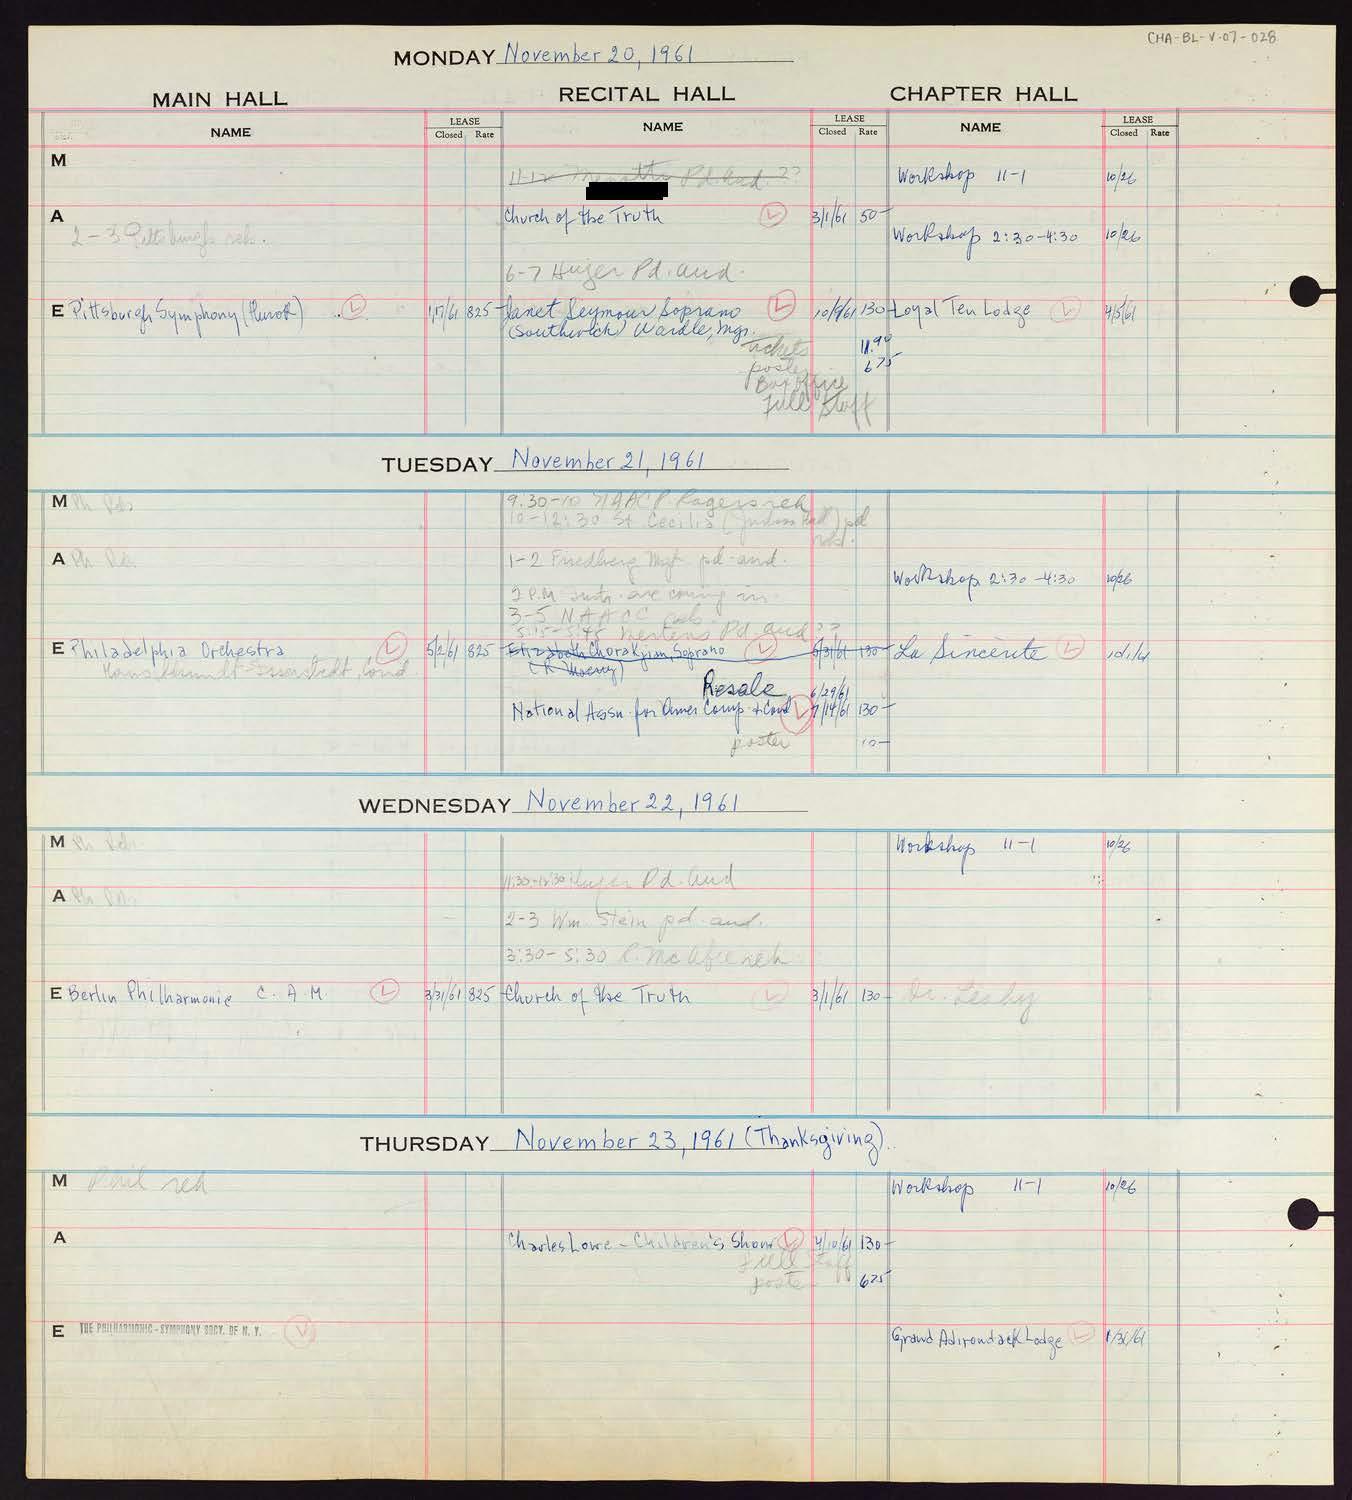 CHA-BL-V-07-028
MONDAY November 20, 1961
MAIN HALL RECITAL HALL CHAPTER HALL
NAME LEASE Closed Rate NAME LEASE Closed Rate NAME LEASE Closed Rate
M
11-12 Pd. aud. ??
Workshop 11-1 10/26
A
Church of the Truth 3/1/61 50-
2-3 Pittsburgh reh.
Workshop 2:30-4:30 10/26
6-7 Huger Pd. aud.
E Pittsburgh Symphony (Hurok) 1/17/61 825- Janet Seymour Soprano 10/9/61 130- Loyal Ten Lodge 4/5/61
(Southwick) Wardle, Mgr.
tickets 11.90
poster 6 75
Box office
Full Staff
TUESDAY November 21, 1961
M Ph Reh
9:30-10 Rogers reh
10-12:30 St Cecilia (Judson Hall) pd
A Ph Reh.
1-2 Friedberg Mgt pd. aud.
Workshop 2:30-4:30 10/26
2 P.M. are coming in.
3-5 NAACC reh.
5:15-5:45 Mertens Pd aud ??
E Philadelphia Orchestra 5/2/61 825- Elizabeth Chorakjian, Soprano 5/31/61 130- La Sincerite
Hans Schmidt-Isserstedt, Cond.
Resale 6/29/61
National Assn. for Amer Comp + Cond 7/14/61 130-
poster 10-
WEDNESDAY November 22, 1961
M Ph Reh.
Workshop 11-1 10/26
11:30-12:30 Huger Pd. aud
A Ph Reh.
2-3 Wm. Stein pd. aud.
3:30-5:30 R. McAfee reh
E Berlin Philharmonic C. A. M. 3/31/61 825- Church of the Truth 3/1/61 130- Dr. Lesky
THURSDAY November 23, 1961 (Thanksgiving)
M Phil reh
Workshop 11-1 10/26
A
Charles Lowe - Children's Show 4/10/61 130-
Full Staff
poster 6 75
E THE PHILHARMONIC-SYMPHONY SOCY. OF N. Y.
Grand Adirondack Lodge 1/31/61